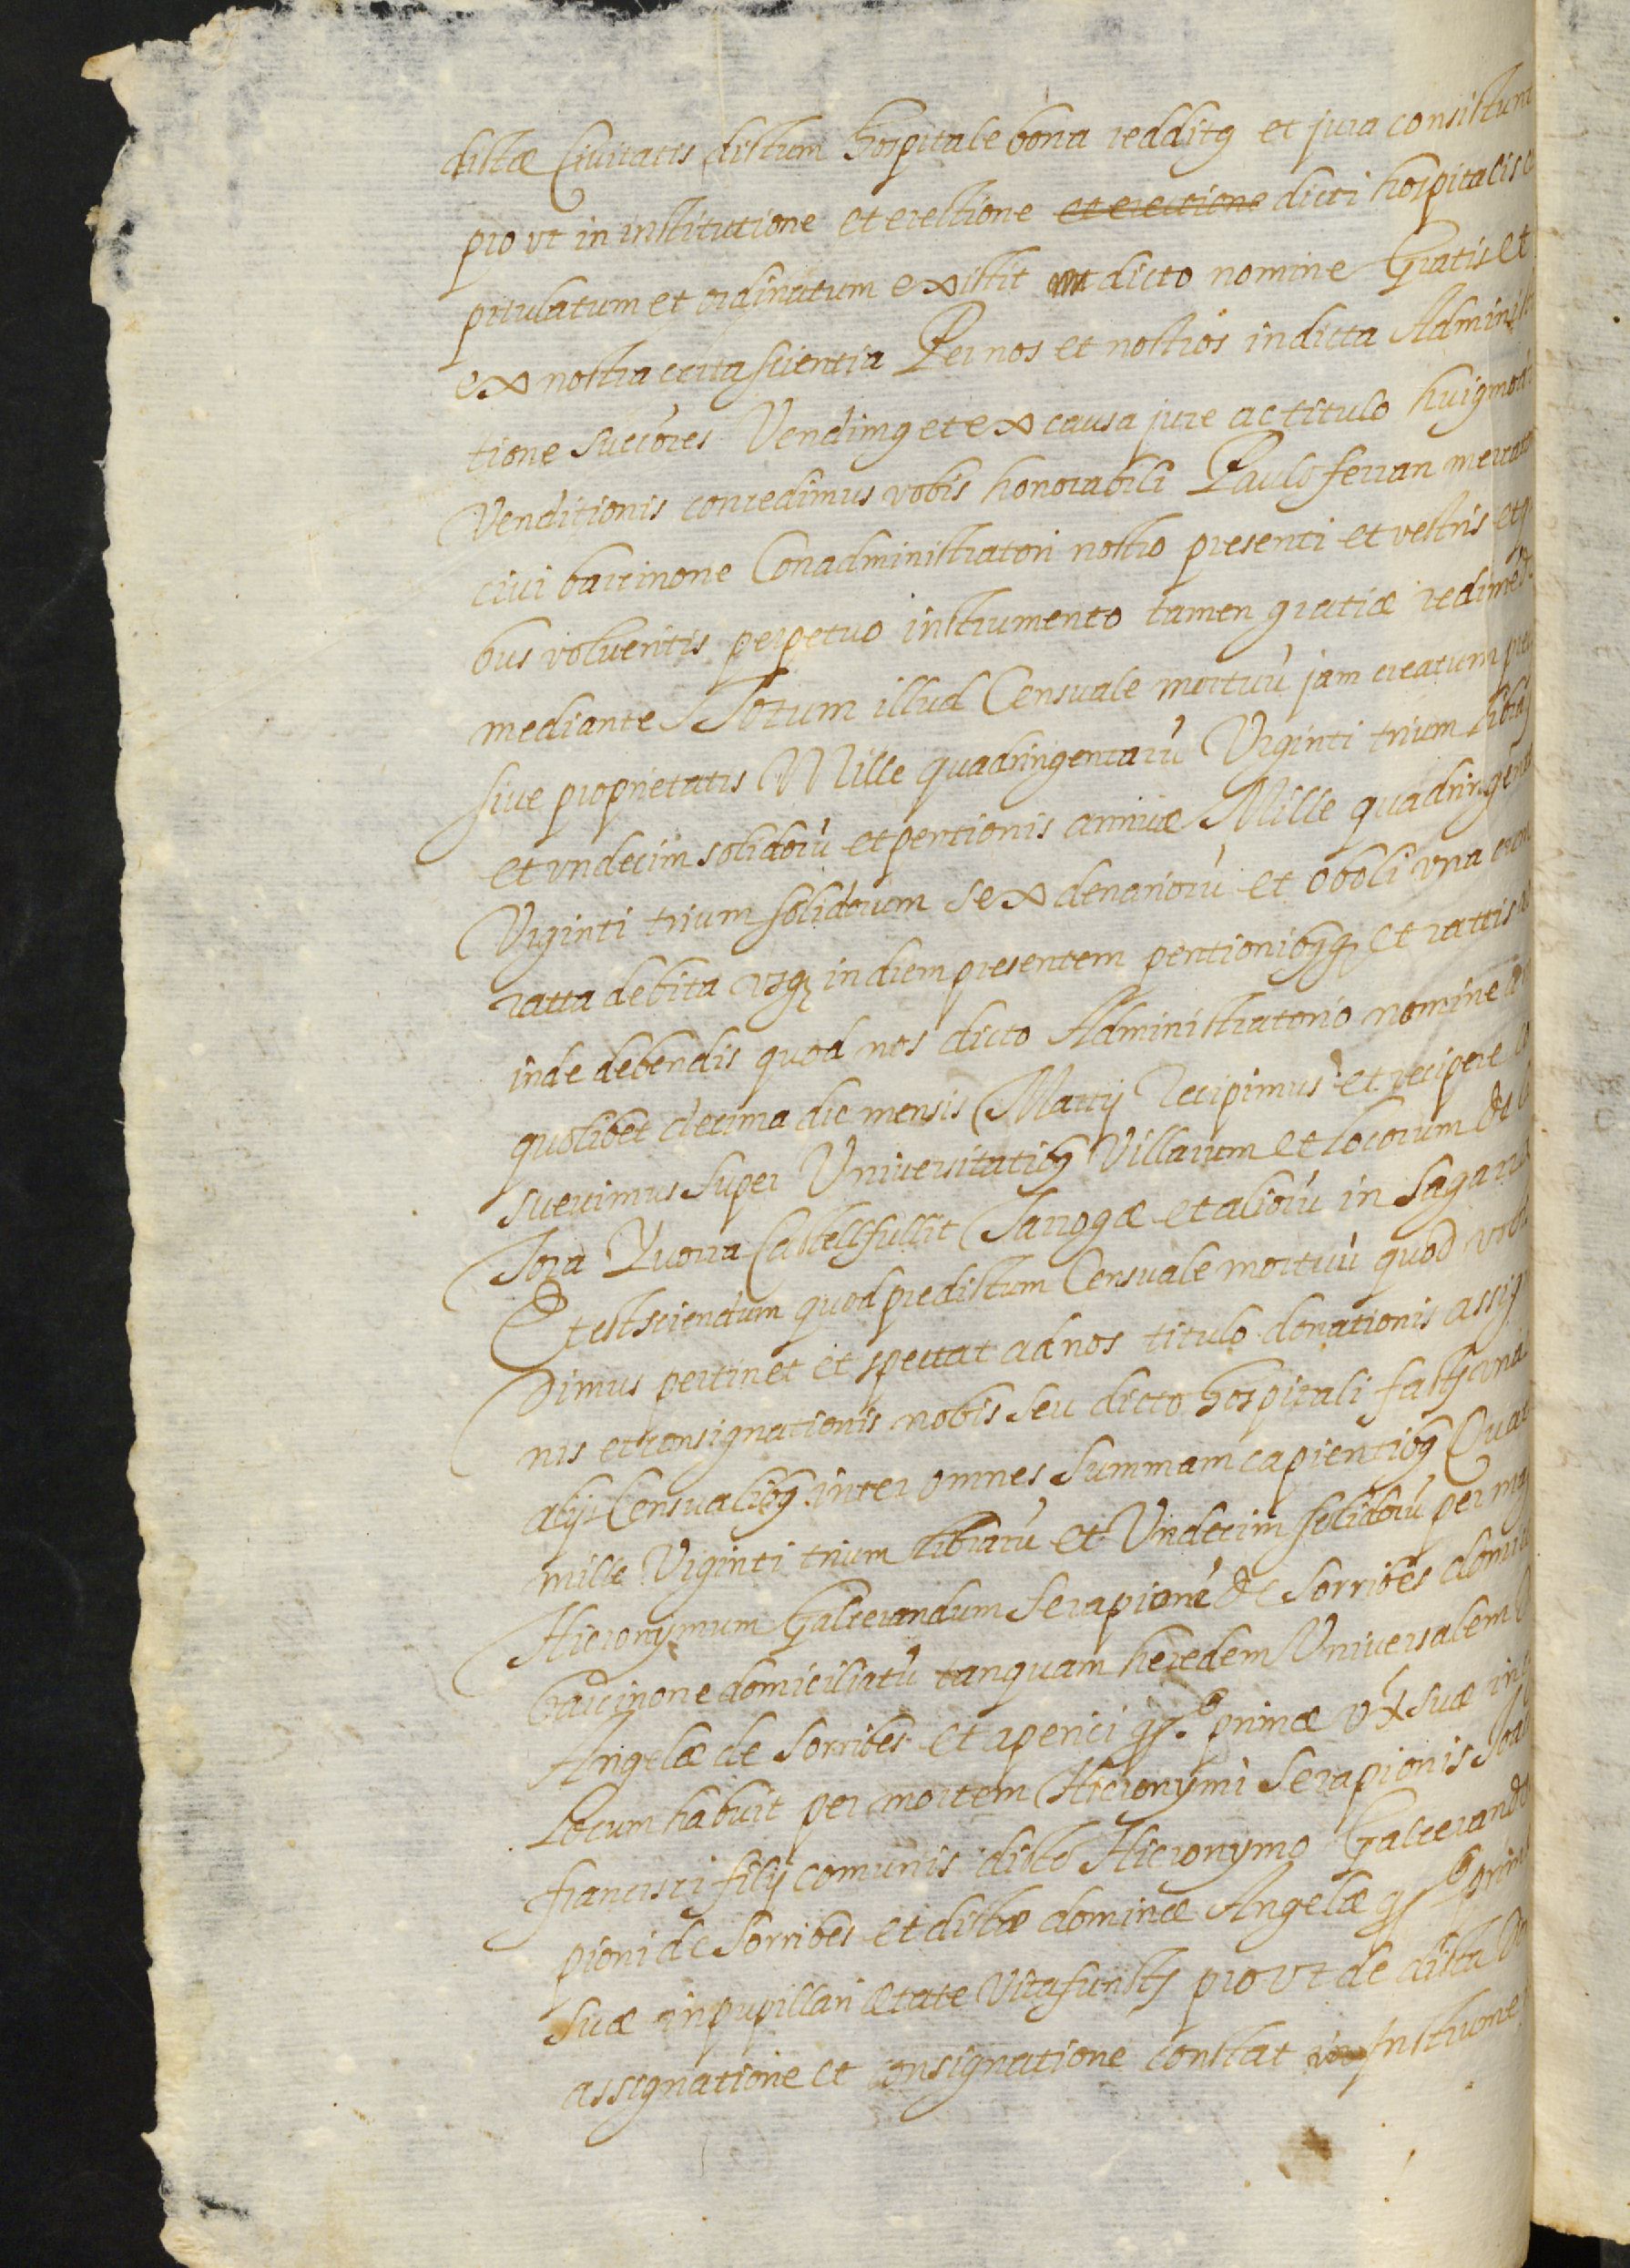 dictæ Civitatis dictum hospitale bona redditq et jura consistunt
pro vt in institutione et erectione et erectione dicti hospitalis ca
pitulatum et ordinatum existit dicto nomine Gratis et
ex nostra certa scientia Per nos et nostros in dicta Administ
tione succores Vendimq et ex causa jure ac titulo huiqmodi
Venditionis concedimus vobis honorabili Paulo ferran mercatori
civi barcinone Conadministratori nostro presenti et vestris et qui
bus volueritis perpetuo instrumento tamen gratiæ redimendi
mediante Totum illud Censuale mortuù jam creatum pre
sive proprietatis Mille quadringentarù Viginti trium libraru
et vndecim solidorù et pentionis annuæ Mille quadringent
Viginti trium solidorum sex denariorù et oboli vna cum
ratta debita vsqz in diem presentem pentionibqqz et rattis
inde debendis quod nos dicto Administratorio nomine
quolibet decima die mensis Martij Recipimus et recipere con
suevimus super Universitatibq Villarum et locorum de la
Tora Yvorra Castellfullit Tarrogæ et aliorù in Sagarra
Et est sciendum quod predictum Censuale mortuù quod vobis
Dimus pertinet et spectat ad nos titulo donationis assig
nis et consignationis nobis seu dicto hospitali facts vna
alijs Censualibq inter omnes Summam capientibq Quat
mille Viginti trium librarù et Undecim solidorù per mag
Hieronymum Galcerandum Serapionè de Sorribes domi
barcinone domiciliatù tanquam heredem Universalem D
Angelæ de Sorribes et aperici qs.e primæ vxs suæ in
Locum habuit per mortem Hieronymi Serapionis Joa
francisci filij comunis dicto Hieronymo Galcerando
pioni de Sorribes et dictæ dominæ Angelæ qs primæ
suæ in pupillari ætate vita functs pro vt de dicta
assignatione et consignatione constat Instrumen